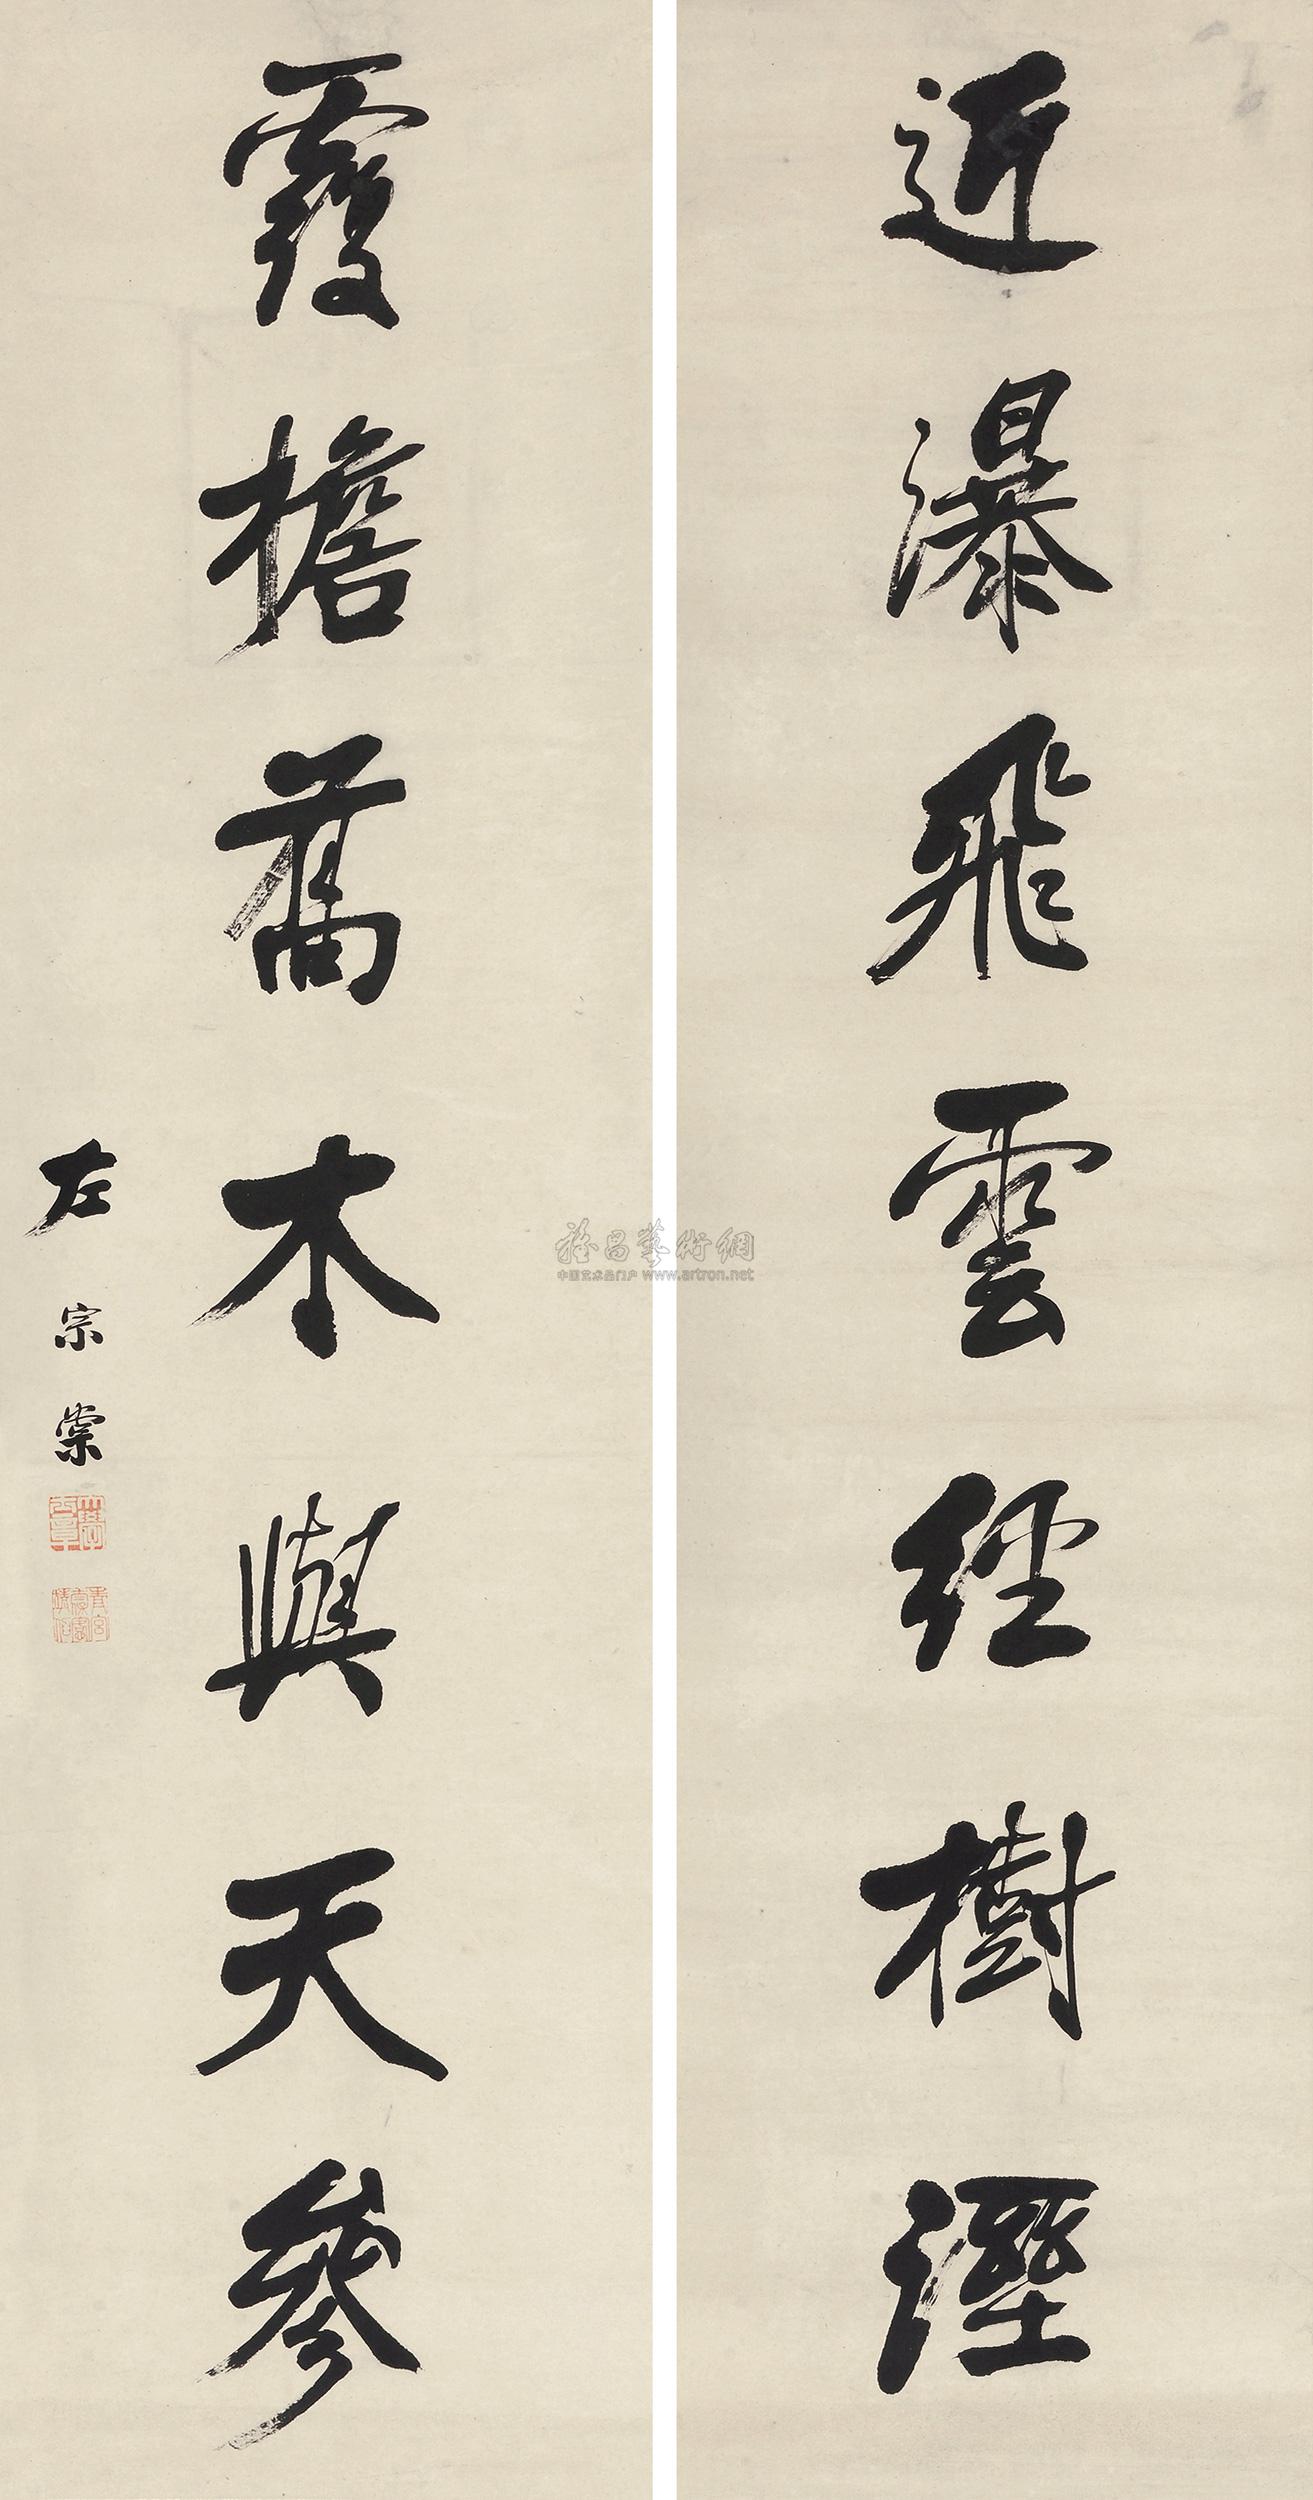 近瀑飛雲經樹溼
霞檐舊木與天參
左宗棠
雅昌藝術網
中国艺术品门户 www.artron.net